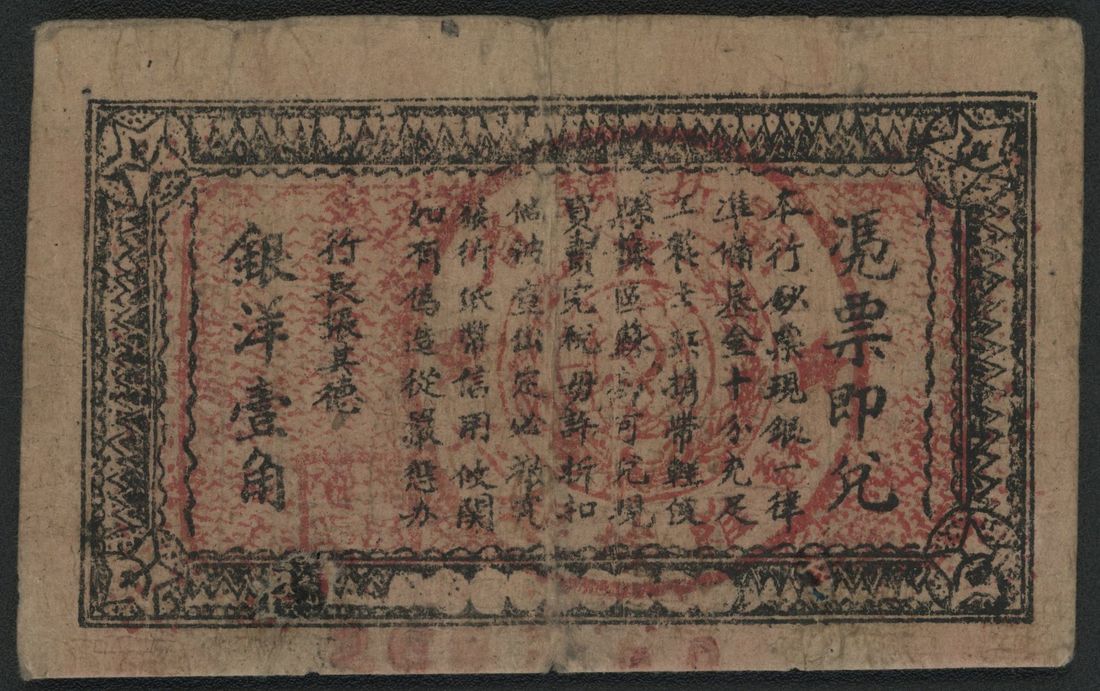 凴票即兌
本行鈔票現銀一律
準備基金十分充足
工農士兵携帶輕便
縣蘇區蘇可兌現
買賣完稅毋許折扣
倘被查出定必
行紙幣信用攸關
如有偽造從嚴懲办
行長張其德
銀洋壹角